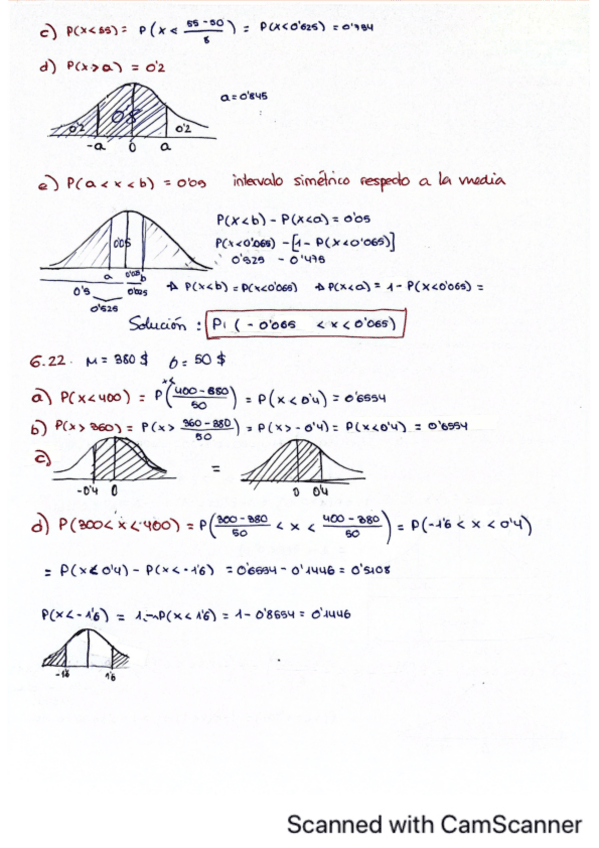 c) P(x<55) = P(x < 55-50/8) = P(x<0'625) = 0'734
d) P(x>a) = 0'2
a=0'845
0'2 0'8 0'2
-a 0 a
e) P(a<x<b) = 0'05 intervalo simétrico respecto a la media
P(x<b) - P(x<a) = 0'05
0'05
P(x<0'065) - [1 - P(x<0'065)]
0'525 - 0'475
a 0'025 b
0'5 0'025
P(x<b) = P(x<0'065) P(x<a) = 1 - P(x<0'065) =
0'525
Solución: P( -0'065 < x < 0'065)
6.22. M = 380 $ σ = 50 $
a) P(x<400) = P(x< 400-380/50) = P(x<0'4) = 0'6554
b) P(x>360) = P(x> 360-380/50) = P(x>-0'4) = P(x<0'4) = 0'6554
c)
=
-0'4 0 0 0'4
d) P(300<x<400) = P(300-380/50 < x < 400-380/50) = P(-1'6 < x < 0'4)
= P(x<0'4) - P(x<-1'6) = 0'6554 - 0'1446 = 0'5108
P(x<-1'6) = 1 - P(x<1'6) = 1 - 0'8554 = 0'1446
-1'6 1'6
Scanned with CamScanner